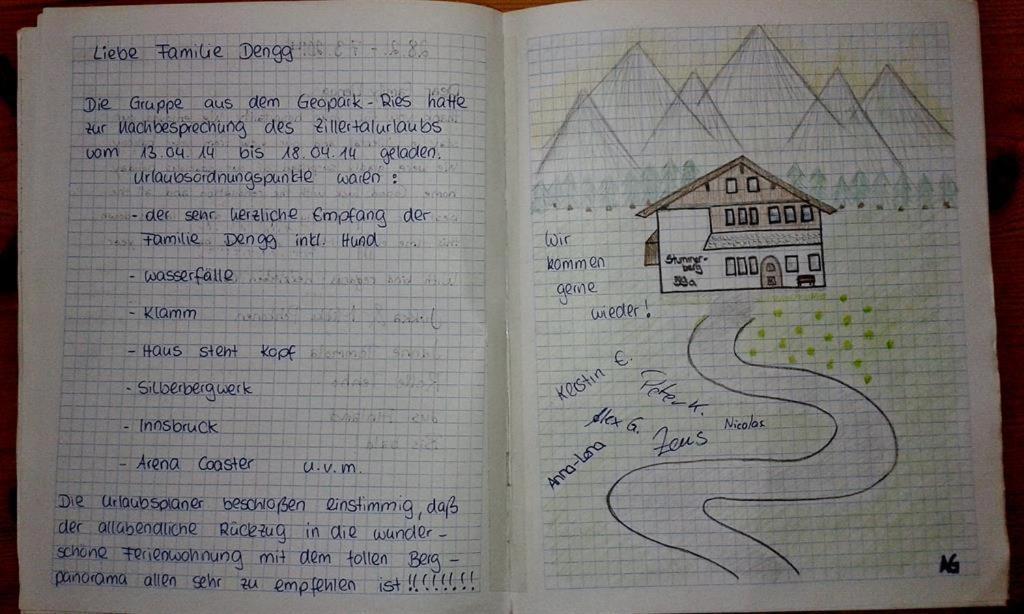 Liebe Familie Dengg
Die Gruppe aus dem Geopark - Ries hatte
zur Nachbesprechung des Zillertalurlaubs
vom 13.04.14 bis 18.04.14 geladen.
Urlaubsordnungspunkte waren :
- der sehr herzliche Empfang der
Familie Dengg inkl. Hund
- Wasserfälle
- Klamm
- Haus steht Kopf
- Silberbergwerk
- Innsbruck
- Arena Coaster u.v.m.
Die Urlaubsplaner beschloßen einstimmig, daß
der allabendliche Rückzug in die wunder-
schöne Ferienwohnung mit dem tollen Berg-
panorama allen sehr zu empfehlen ist !!!!!!!!
Stummer-
berg
39a
Wir
kommen
gerne
wieder!
Kerstin E.
Peter K.
Alex G.
Zeus
Nicolas
Anna-Lena
AG